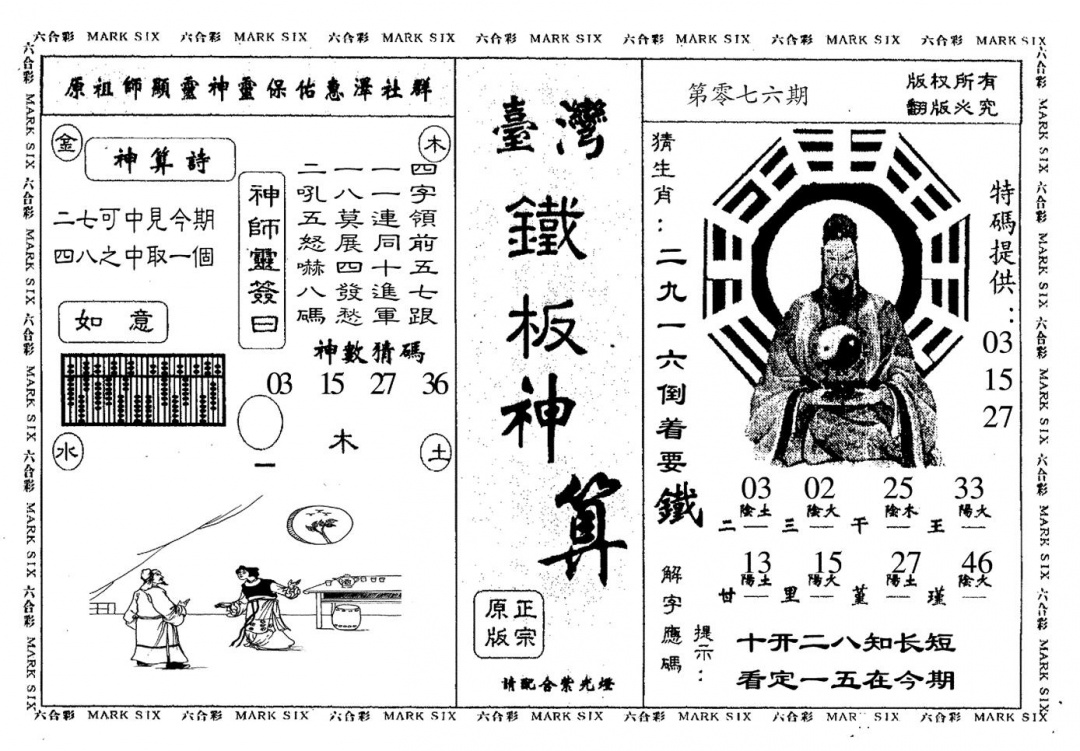 六合彩 MARK SIX 六合彩 MARK SIX 六合彩 MARK SIX 六合彩 MARK SIX 六合彩 MARK SIX 六合彩 MARK SIX 六合彩 MARK SIX
六合彩 MARK SIX 六合彩 MARK SIX 六合彩 MARK SIX 六合彩 MARK SIX 六合彩 MARK SIX
原祖師顯靈神靈保佑惠澤社群
金
木
神算詩
二七可中見今期
四八之中取一個
如意
神師靈簽曰
四字領前五七跟
一一連同十進軍
一八莫展四發愁
二吼五怒嚇八碼
神數猜碼
03 15 27 36
木
一
水
土
臺灣
鐵板神算
正宗
原版
請配合紫光燈
第零七六期
版权所有
翻版必究
猜生肖：二九一六倒着要鐵
特碼提供：
03
15
27
03 02 25 33
陰土 陰火 陰木 陽火
二 三 干 王
13 15 27 46
陽土 陽火 陽土 陰火
廿 里 堇 瑾
解字應碼
提示：
十开二八知长短
看定一五在今期
六合彩 MARK SIX 六合彩 MARK SIX 六合彩 MARK SIX 六合彩 MARK SIX 六合彩 MARK SIX
六合彩 MARK SIX 六合彩 MARK SIX 六合彩 MARK SIX 六合彩 MARK SIX 六合彩 MARK SIX 六合彩 MARK SIX 六合彩 MARK SIX